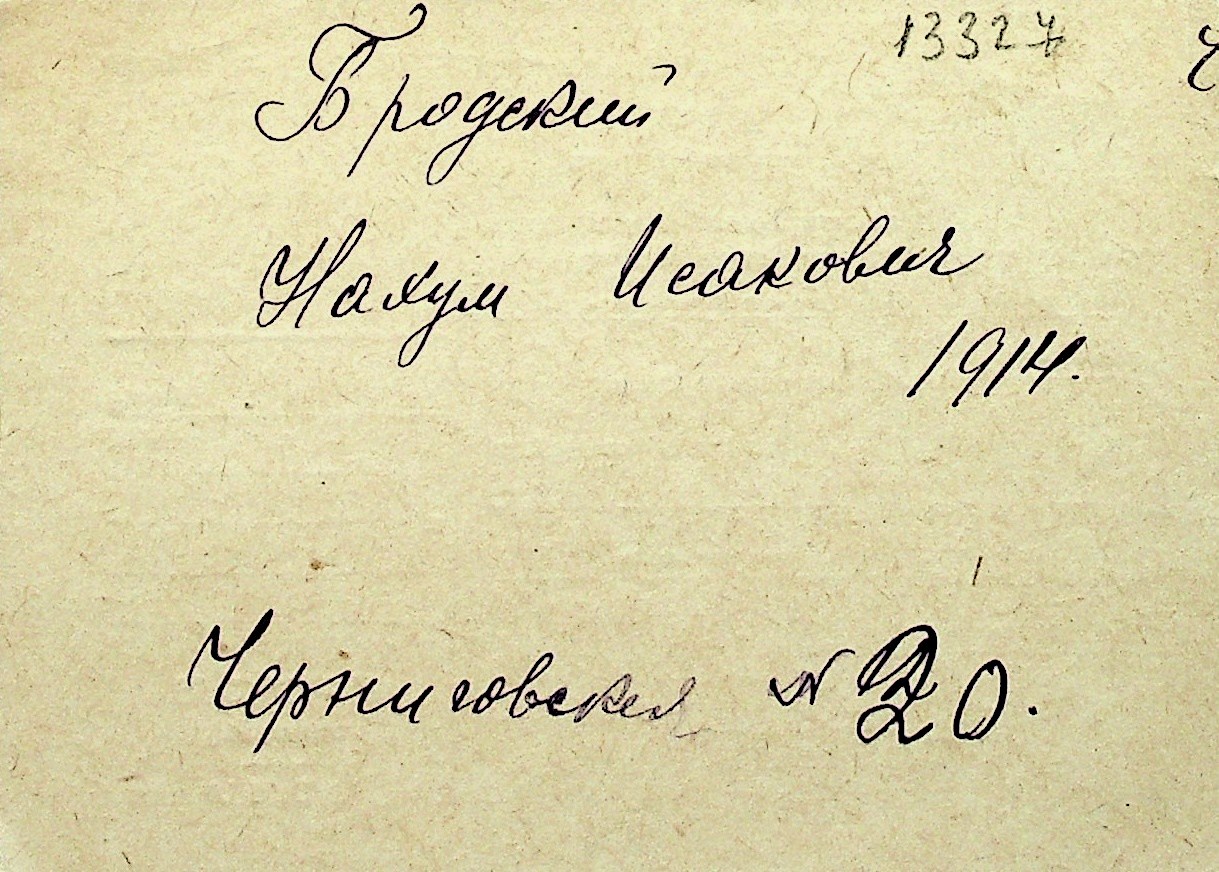 13327
Бродский
Нахум Исакович
1914.
Черниговская № 20.